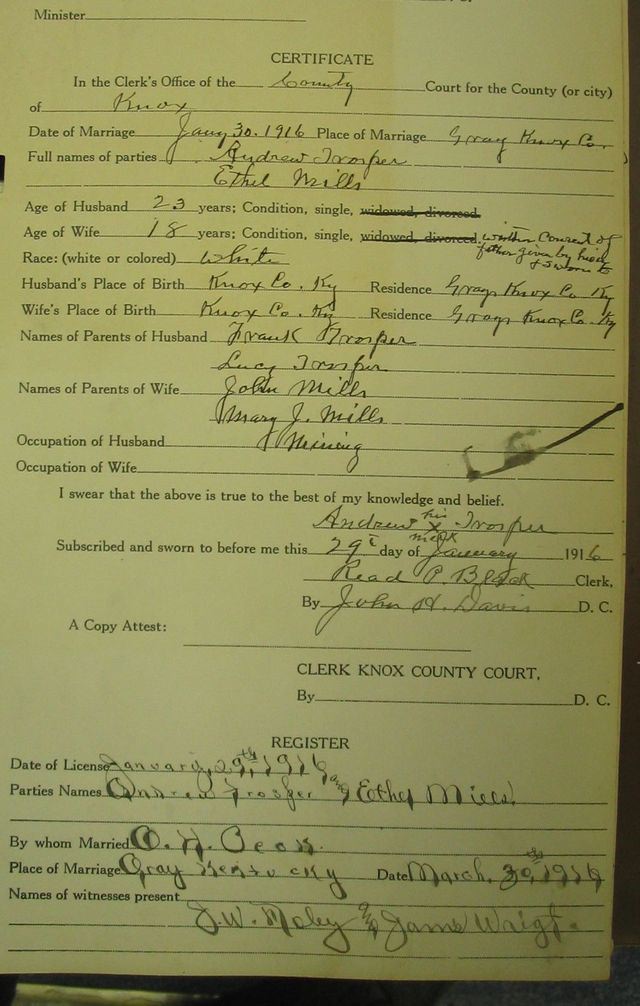 Minister
CERTIFICATE
In the Clerk's Office of the County Court for the County (or city)
of Knox
Date of Marriage Jany 30. 1916 Place of Marriage Gray Knox Co.
Full names of parties Andrew Trosper
Ethel Mills
Age of Husband 23 years; Condition, single, widowed, divorced.
Age of Wife 18 years; Condition, single, widowed, divorced. written Consent of
father given by him
& sworn to
Race: (white or colored) White
Husband's Place of Birth Knox Co. Ky Residence Grays Knox Co Ky
Wife's Place of Birth Knox Co. Ky Residence Grays Knox Co. Ky
Names of Parents of Husband Frank Trosper
Lucy Trosper
Names of Parents of Wife John Mills
Mary J. Mills
Occupation of Husband Mining
Occupation of Wife
I swear that the above is true to the best of my knowledge and belief.
Andrew his X mark Trosper
Subscribed and sworn to before me this 29t day of January 1916
Read P. Black Clerk,
By John H. Davis D. C.
A Copy Attest:
CLERK KNOX COUNTY COURT,
By D. C.
REGISTER
Date of License January, 29th, 1916
Parties Names Andrew Trosper and Ethel Mills
By whom Married O. H.
Place of Marriage Gray Kentucky Date March, 30th, 1916
Names of witnesses present
J. W. and James Wright